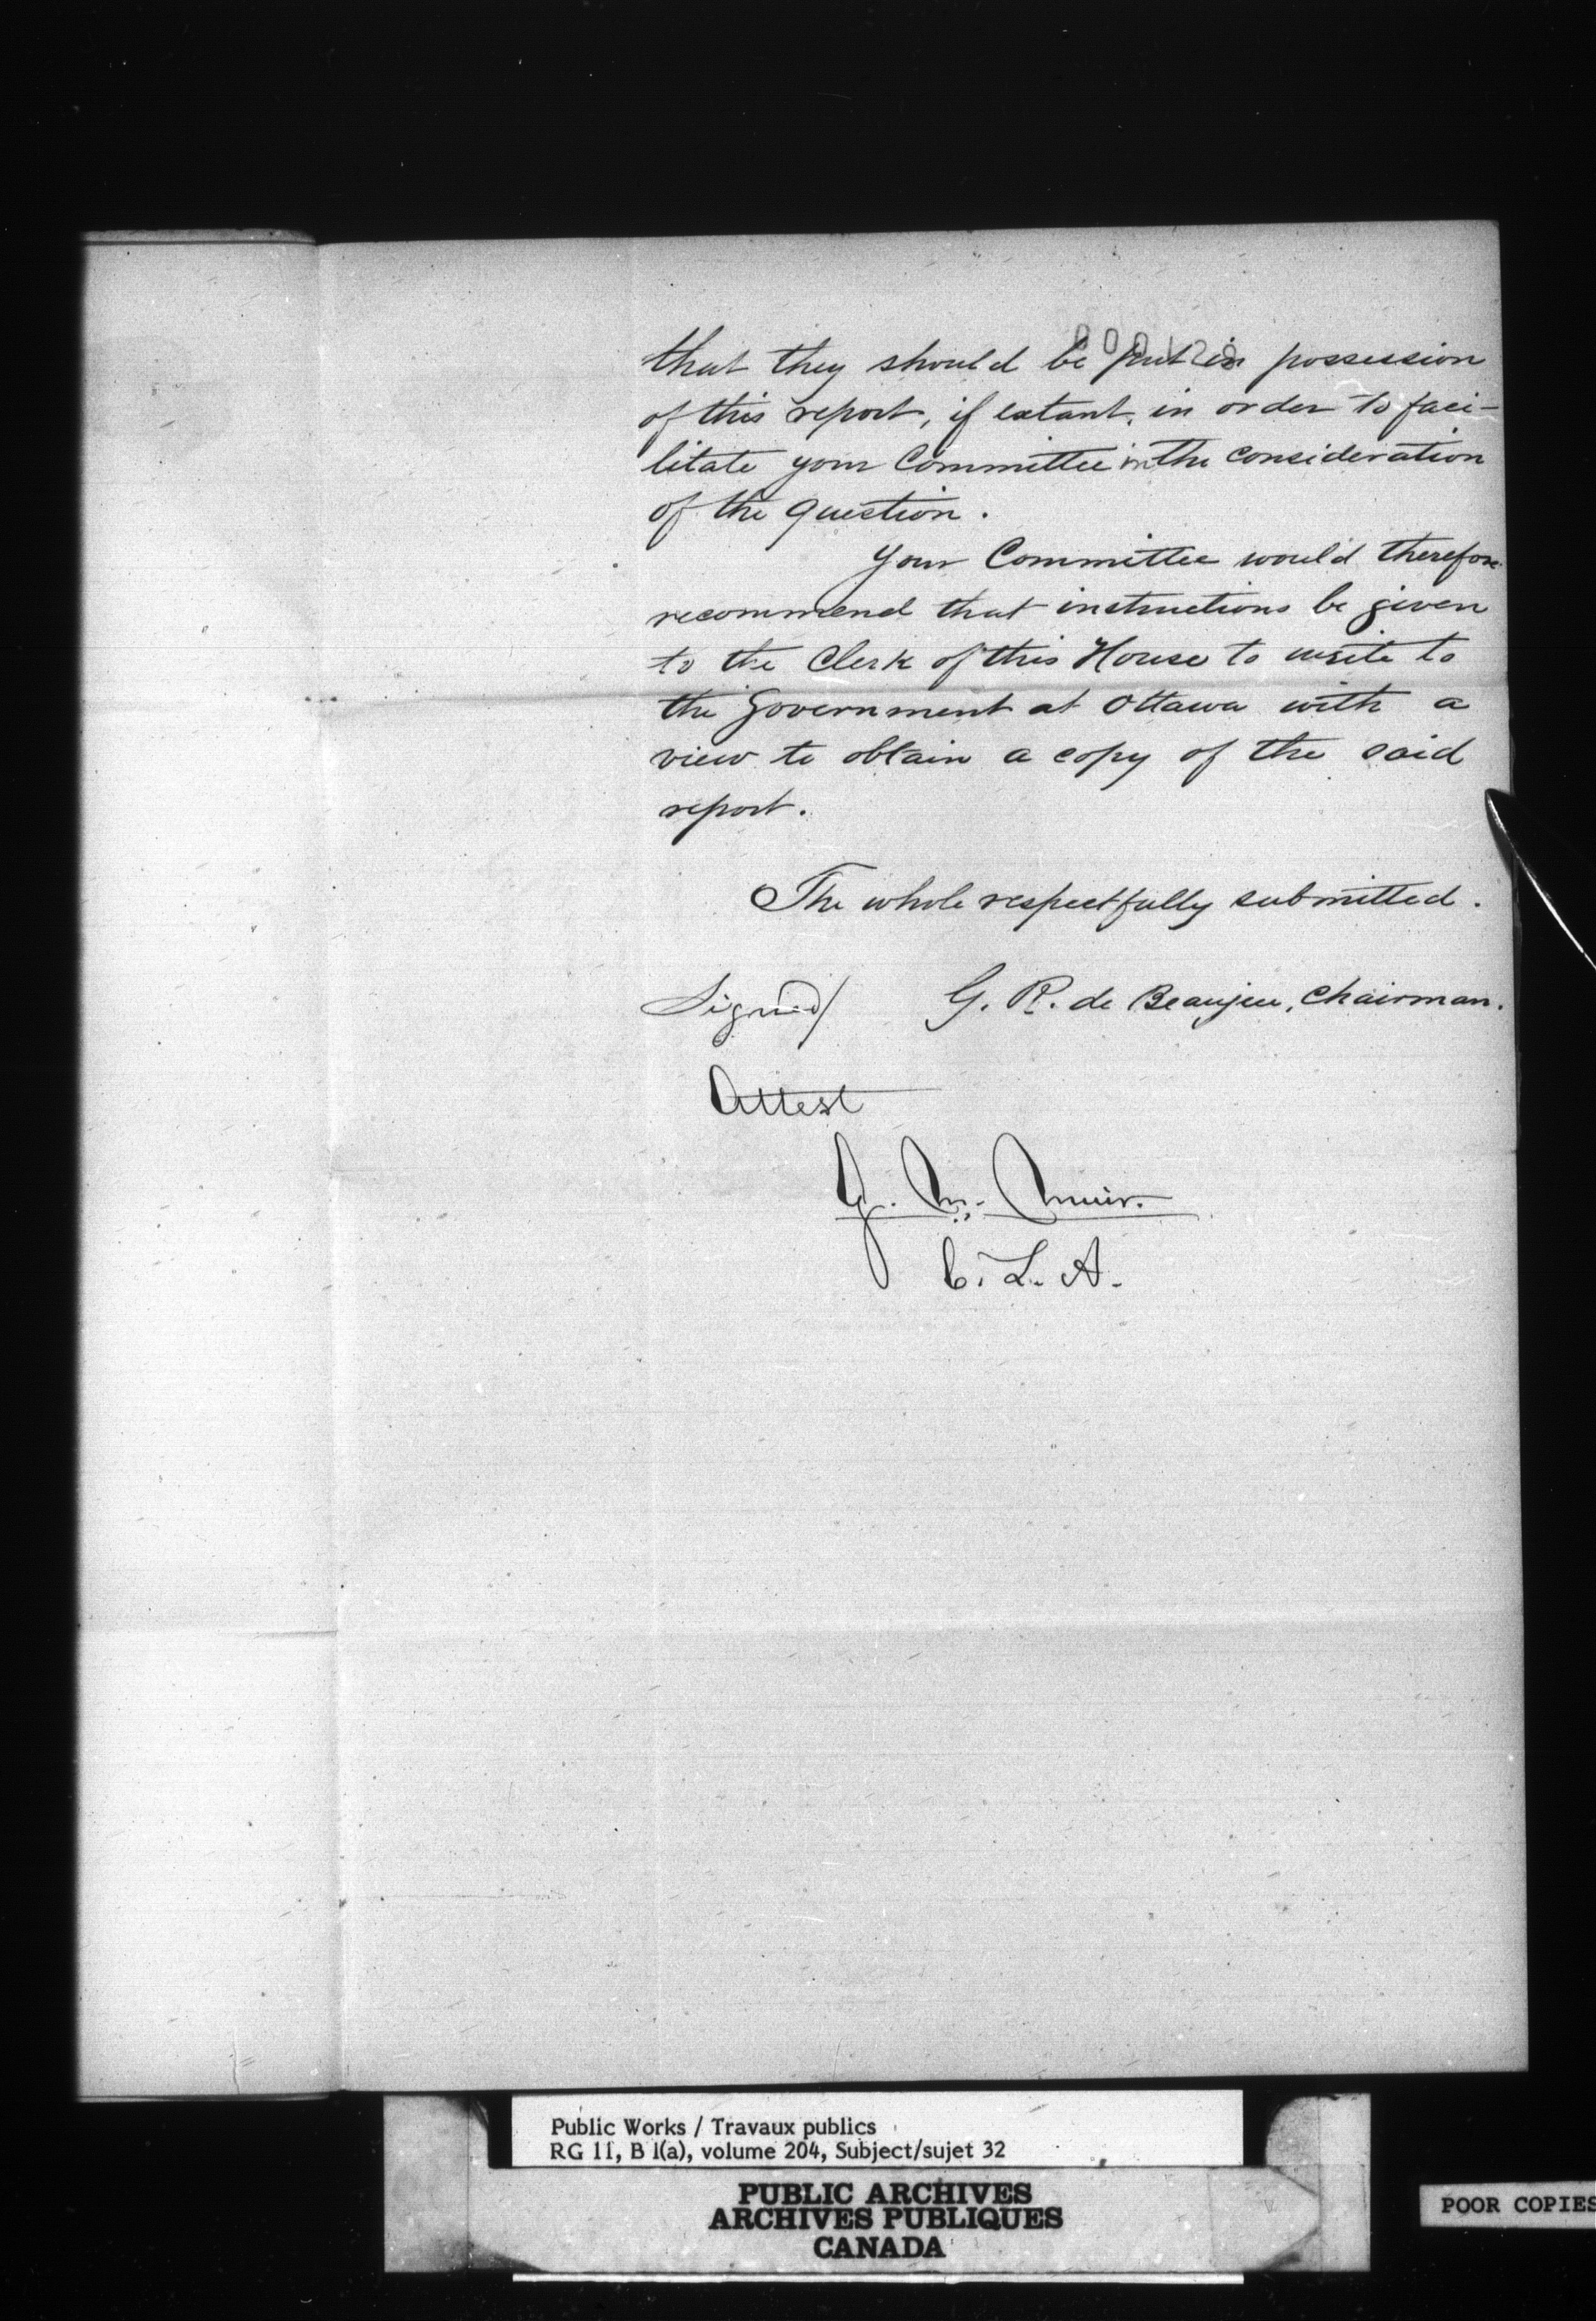 000128
that they should be put in possession
of this report, if extant, in order to faci-
litate your Committee in the consideration
of the question.
Your Committee would therefore
recommend that instructions be given
to the Clerk of this House to write to
the Government at Ottawa with a
view to obtain a copy of the said
report.
The whole respectfully submitted.
Signed/ G. R. de Beaujeu, Chairman.
Attest
G. M. Muir.
C. L. A.
Public Works / Travaux publics
RG 11, B 1(a), volume 204, Subject/sujet 32
PUBLIC ARCHIVES
ARCHIVES PUBLIQUES
CANADA
POOR COPIES